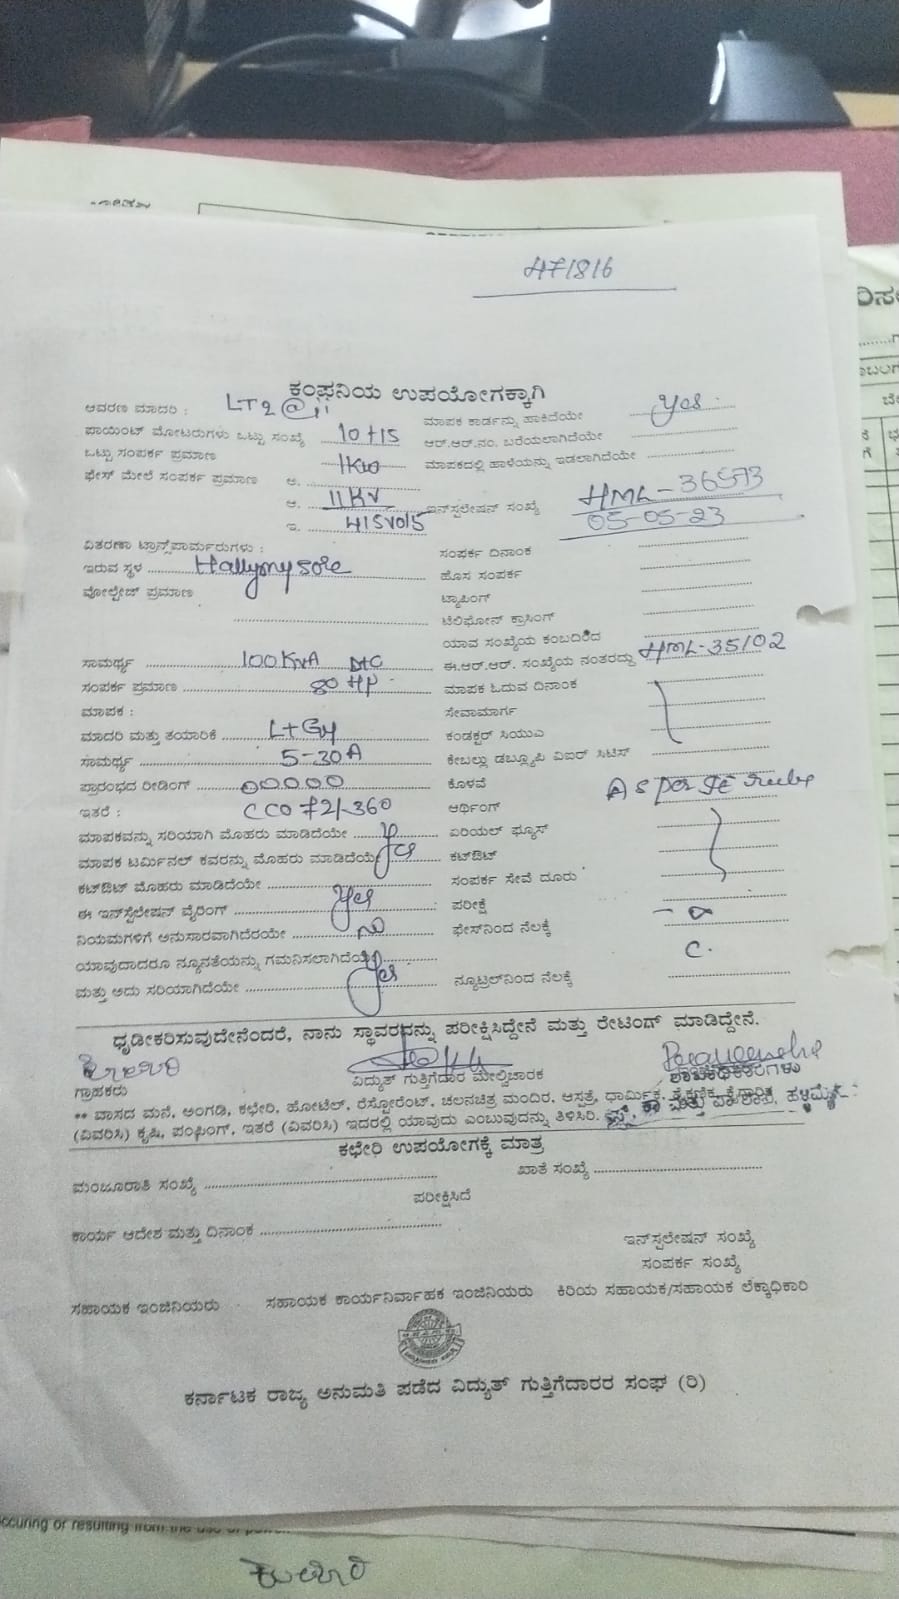 471816
ಕಂಪನಿಯ ಉಪಯೋಗಕ್ಕಾಗಿ
ಆವರಣ ಮಾದರಿ : LT2
ಮಾಪಕ ಕಾರ್ಡನ್ನು ಹಾಕಿದೆಯೇ yes
ಪಾಯಿಂಟ್ ಮೋಟರುಗಳು ಒಟ್ಟು ಸಂಖ್ಯೆ 10+15
ಆರ್.ಆರ್.ನಂ. ಬರೆಯಲಾಗಿದೆಯೇ
ಒಟ್ಟು ಸಂಪರ್ಕ ಪ್ರಮಾಣ 1KW
ಮಾಪಕದಲ್ಲಿ ಹಾಳೆಯನ್ನು ಇಡಲಾಗಿದೆಯೇ
ಫೇಸ್ ಮೇಲೆ ಸಂಪರ್ಕ ಪ್ರಮಾಣ ಅ.
ಆ. 11KV
ಇನ್ಸ್ಟಲೇಷನ್ ಸಂಖ್ಯೆ HML-36573
ಇ. 415Volts
05-05-23
ವಿತರಣಾ ಟ್ರಾನ್ಸ್‌ಪಾರ್ಮರುಗಳು :
ಸಂಪರ್ಕ ದಿನಾಂಕ
ಇರುವ ಸ್ಥಳ Hallymysore
ಹೊಸ ಸಂಪರ್ಕ
ವೋಲ್ಟೇಜ್ ಪ್ರಮಾಣ
ಟ್ಯಾಪಿಂಗ್
ಟೆಲಿಫೋನ್ ಕ್ರಾಸಿಂಗ್
ಯಾವ ಸಂಖ್ಯೆಯ ಕಂಬದಿಂದ
ಸಾಮರ್ಥ್ಯ 100KVA
ಈ.ಆರ್.ಆರ್. ಸಂಖ್ಯೆಯ ನಂತರದ್ದು HML-35102
ಸಂಪರ್ಕ ಪ್ರಮಾಣ 80 HP
ಮಾಪಕ ಓದುವ ದಿನಾಂಕ
ಮಾಪಕ :
ಸೇವಾಮಾರ್ಗ
ಮಾದರಿ ಮತ್ತು ತಯಾರಿಕೆ L+G
ಕಂಡಕ್ಟರ್ ಸಿಯುಎ
ಸಾಮರ್ಥ್ಯ 5-30A
ಕೇಬಲ್ಲು ಡಬ್ಲ್ಯೂಪಿ ವಿಐಆರ್ ಸಿಟಿಸ್
ಪ್ರಾರಂಭದ ರೀಡಿಂಗ್ 00000
ಕೊಳವೆ
ಇತರೆ :
ಆರ್ಥಿಂಗ್ As per IE rule
ಮಾಪಕವನ್ನು ಸರಿಯಾಗಿ ಮೊಹರು ಮಾಡಿದೆಯೇ
ಏರಿಯಲ್ ಫ್ಯೂಸ್
ಮಾಪಕ ಟರ್ಮಿನಲ್ ಕವರನ್ನು ಮೊಹರು ಮಾಡಿದೆಯೇ yes
ಕಟ್‌ಔಟ್
ಕಟ್‌ಔಟ್ ಮೊಹರು ಮಾಡಿದೆಯೇ
ಸಂಪರ್ಕ ಸೇವೆ ದೂರು
ಈ ಇನ್ಸ್ಟಲೇಷನ್ ವೈರಿಂಗ್ yes
ಪರೀಕ್ಷೆ
ನಿಯಮಗಳಿಗೆ ಅನುಸಾರವಾಗಿದೆರಯೇ
ಫೇಸ್‌ನಿಂದ ನೆಲಕ್ಕೆ
ಯಾವುದಾದರೂ ನ್ಯೂನತೆಯನ್ನು ಗಮನಿಸಲಾಗಿದೆಯೇ
ಮತ್ತು ಅದು ಸರಿಯಾಗಿದೆಯೇ yes
ನ್ಯೂಟ್ರಲ್‌ನಿಂದ ನೆಲಕ್ಕೆ
ಧೃಡೀಕರಿಸುವುದೇನೆಂದರೆ, ನಾನು ಸ್ಥಾವರವನ್ನು ಪರೀಕ್ಷಿಸಿದ್ದೇನೆ ಮತ್ತು ರೇಟಿಂಗ್ ಮಾಡಿದ್ದೇನೆ.
ಗ್ರಾಹಕರು
ವಿದ್ಯುತ್ ಗುತ್ತಿಗೆದಾರ ಮೇಲ್ವಿಚಾರಕ
ಶಾಖಾಧಿಕಾರಿಗಳು
** ವಾಸದ ಮನೆ, ಅಂಗಡಿ, ಕಛೇರಿ, ಹೋಟೆಲ್, ರೆಸ್ಟೋರೆಂಟ್, ಚಲನಚಿತ್ರ ಮಂದಿರ, ಆಸ್ಪತ್ರೆ, ಧಾರ್ಮಿಕ, ಶೈಕ್ಷಣಿಕ, ಕೈಗಾರಿಕ
(ವಿವರಿಸಿ) ಕೃಷಿ, ಪಂಪಿಂಗ್, ಇತರೆ (ವಿವರಿಸಿ) ಇದರಲ್ಲಿ ಯಾವುದು ಎಂಬುವುದನ್ನು ತಿಳಿಸಿರಿ.
ಕಛೇರಿ ಉಪಯೋಗಕ್ಕೆ ಮಾತ್ರ
ಮಂಜೂರಾತಿ ಸಂಖ್ಯೆ
ಖಾತೆ ಸಂಖ್ಯೆ
ಪರೀಕ್ಷಿಸಿದೆ
ಕಾರ್ಯ ಆದೇಶ ಮತ್ತು ದಿನಾಂಕ
ಇನ್ಸ್ಟಲೇಷನ್ ಸಂಖ್ಯೆ
ಸಂಪರ್ಕ ಸಂಖ್ಯೆ
ಸಹಾಯಕ ಇಂಜಿನಿಯರು ಸಹಾಯಕ ಕಾರ್ಯನಿರ್ವಾಹಕ ಇಂಜಿನಿಯರು ಕಿರಿಯ ಸಹಾಯಕ/ಸಹಾಯಕ ಲೆಕ್ಕಾಧಿಕಾರಿ
ಕರ್ನಾಟಕ ರಾಜ್ಯ ಅನುಮತಿ ಪಡೆದ ವಿದ್ಯುತ್ ಗುತ್ತಿಗೆದಾರರ ಸಂಘ (ರಿ)
occuring or resulting from the use of